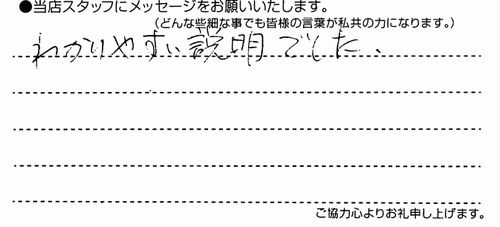 ●当店スタッフにメッセージをお願いいたします。
(どんな些細な事でも皆様の言葉が私共の力になります。)
わかりやすい説明でした、
ご協力心よりお礼申し上げます。